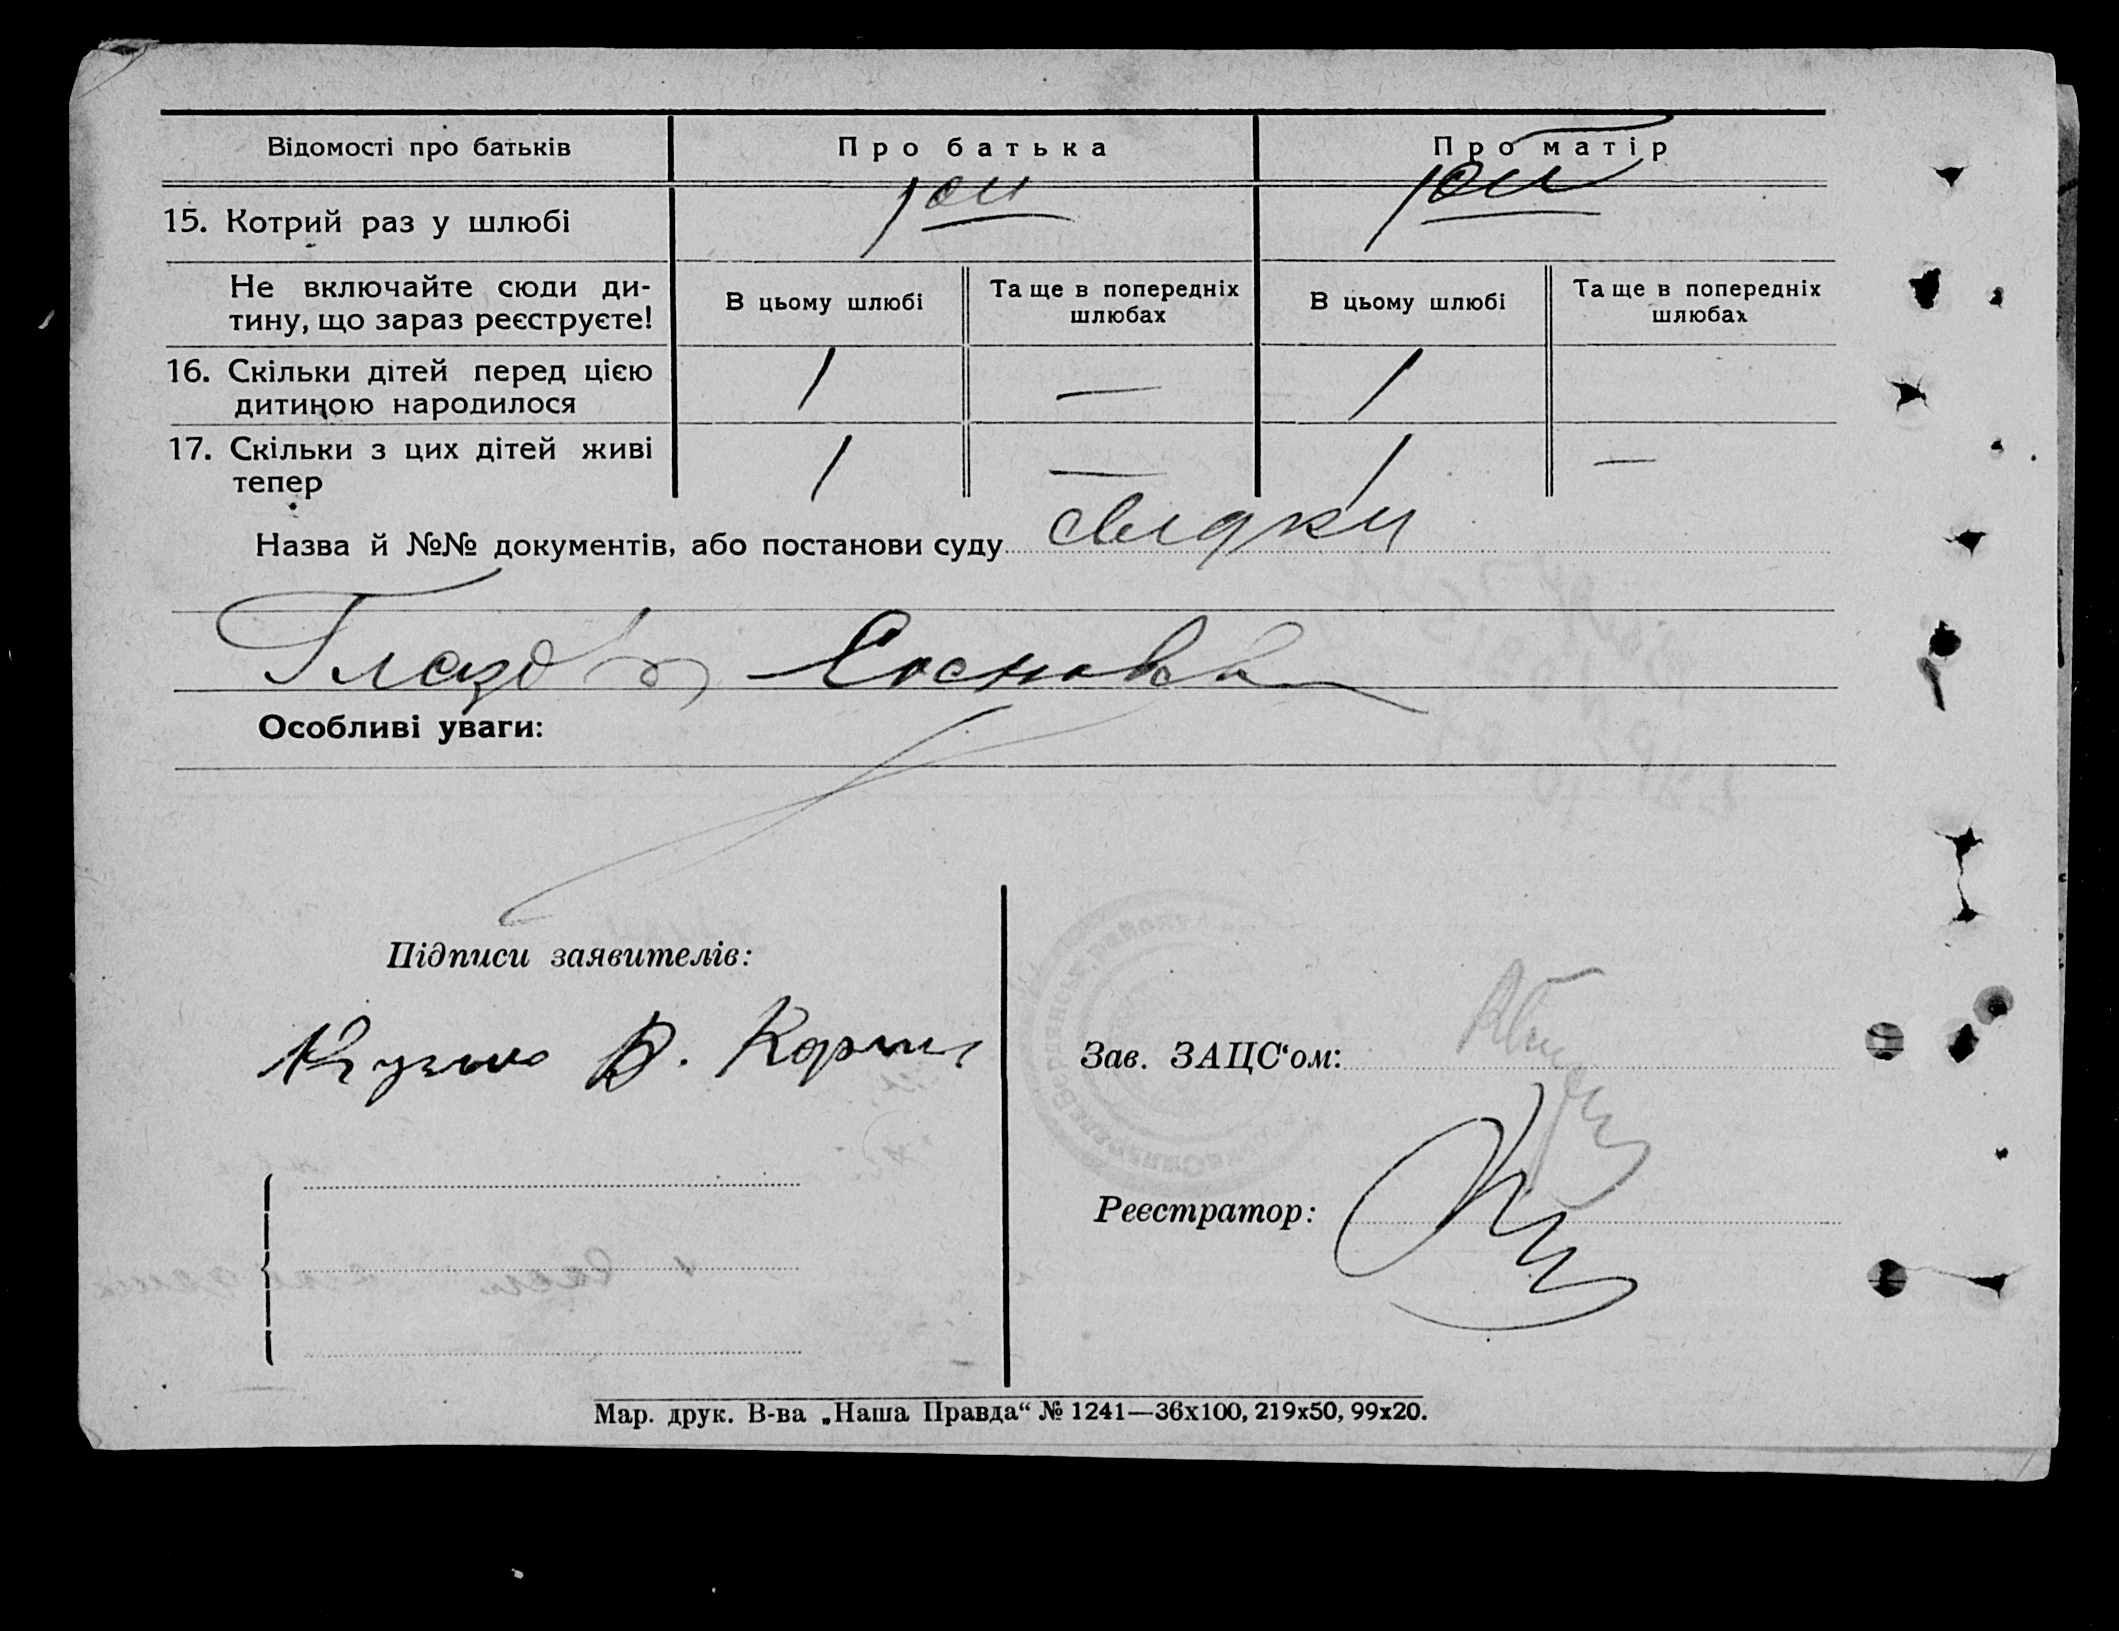 Відомості про батьків
Про батька
Про матір
15. Котрий раз у шлюбі
1ой
1ой
Не включайте сюди ди-
тину, що зараз реєструєте!
В цьому шлюбі
Та ще в попередніх
шлюбах
В цьому шлюбі
Та ще в попередніх
шлюбах
16. Скільки дітей перед цією
дитиною народилося
1
—
1
17. Скільки з цих дітей живі
тепер
1
—
1
—
Назва й №№ документів, або постанови суду свидки
Особливі уваги:
Підписи заявителів:
В.
Зав. ЗАЦС‘ом:
Реєстратор:
Мар. друк. В-ва „Наша Правда“ № 1241—36х100, 219х50, 99х20.